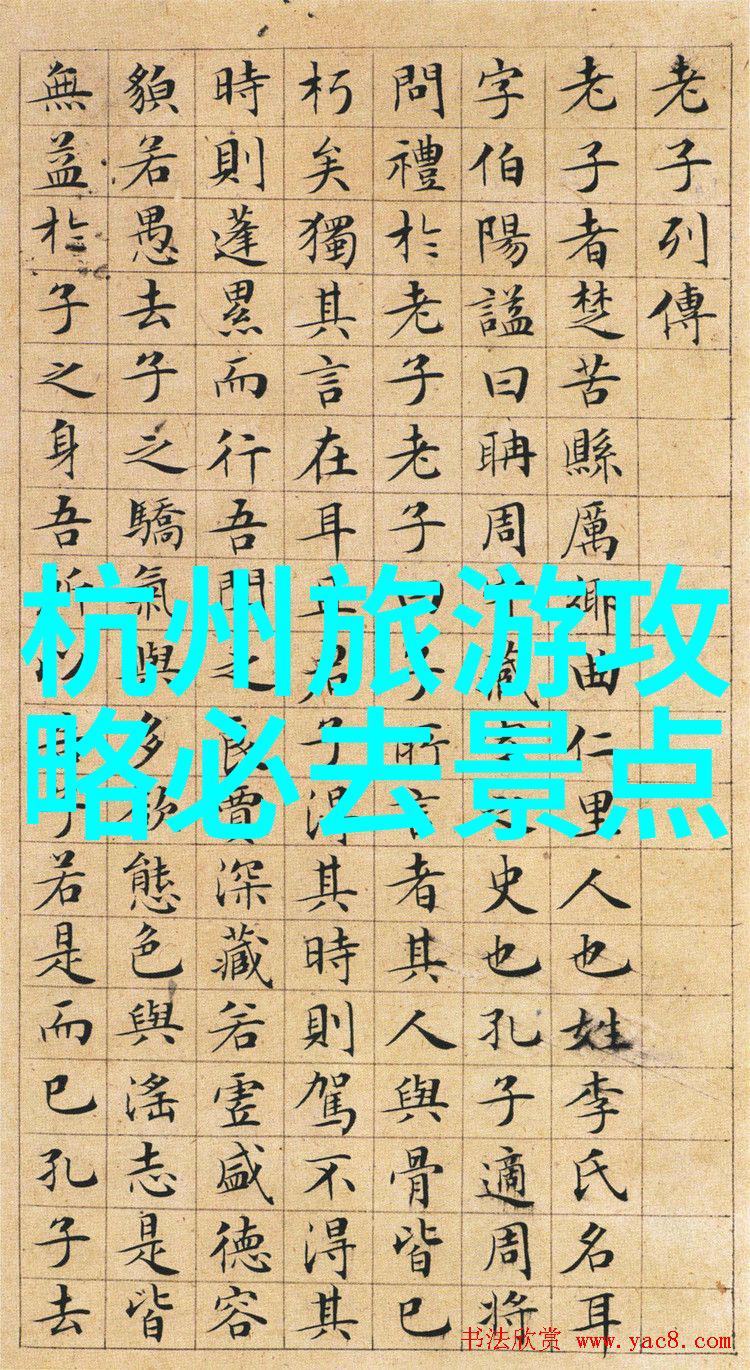 老子列傳
老子者楚苦縣厲鄉曲仁里人也姓李氏名耳
字伯陽謚曰聃周藏史也孔子適周將
問禮於老子老子曰子所言者其人與骨皆已
朽矣獨其言在耳且君子得其時則駕不得其
時則蓬累而行吾聞之良賈深藏若虛盛德容
貌若愚去子之驕氣與多欲態色與淫志是皆
無益於子之身吾所以告子若是而已孔子去
杭州旅游攻
略必去景点
书法欣赏 www.yac8.com